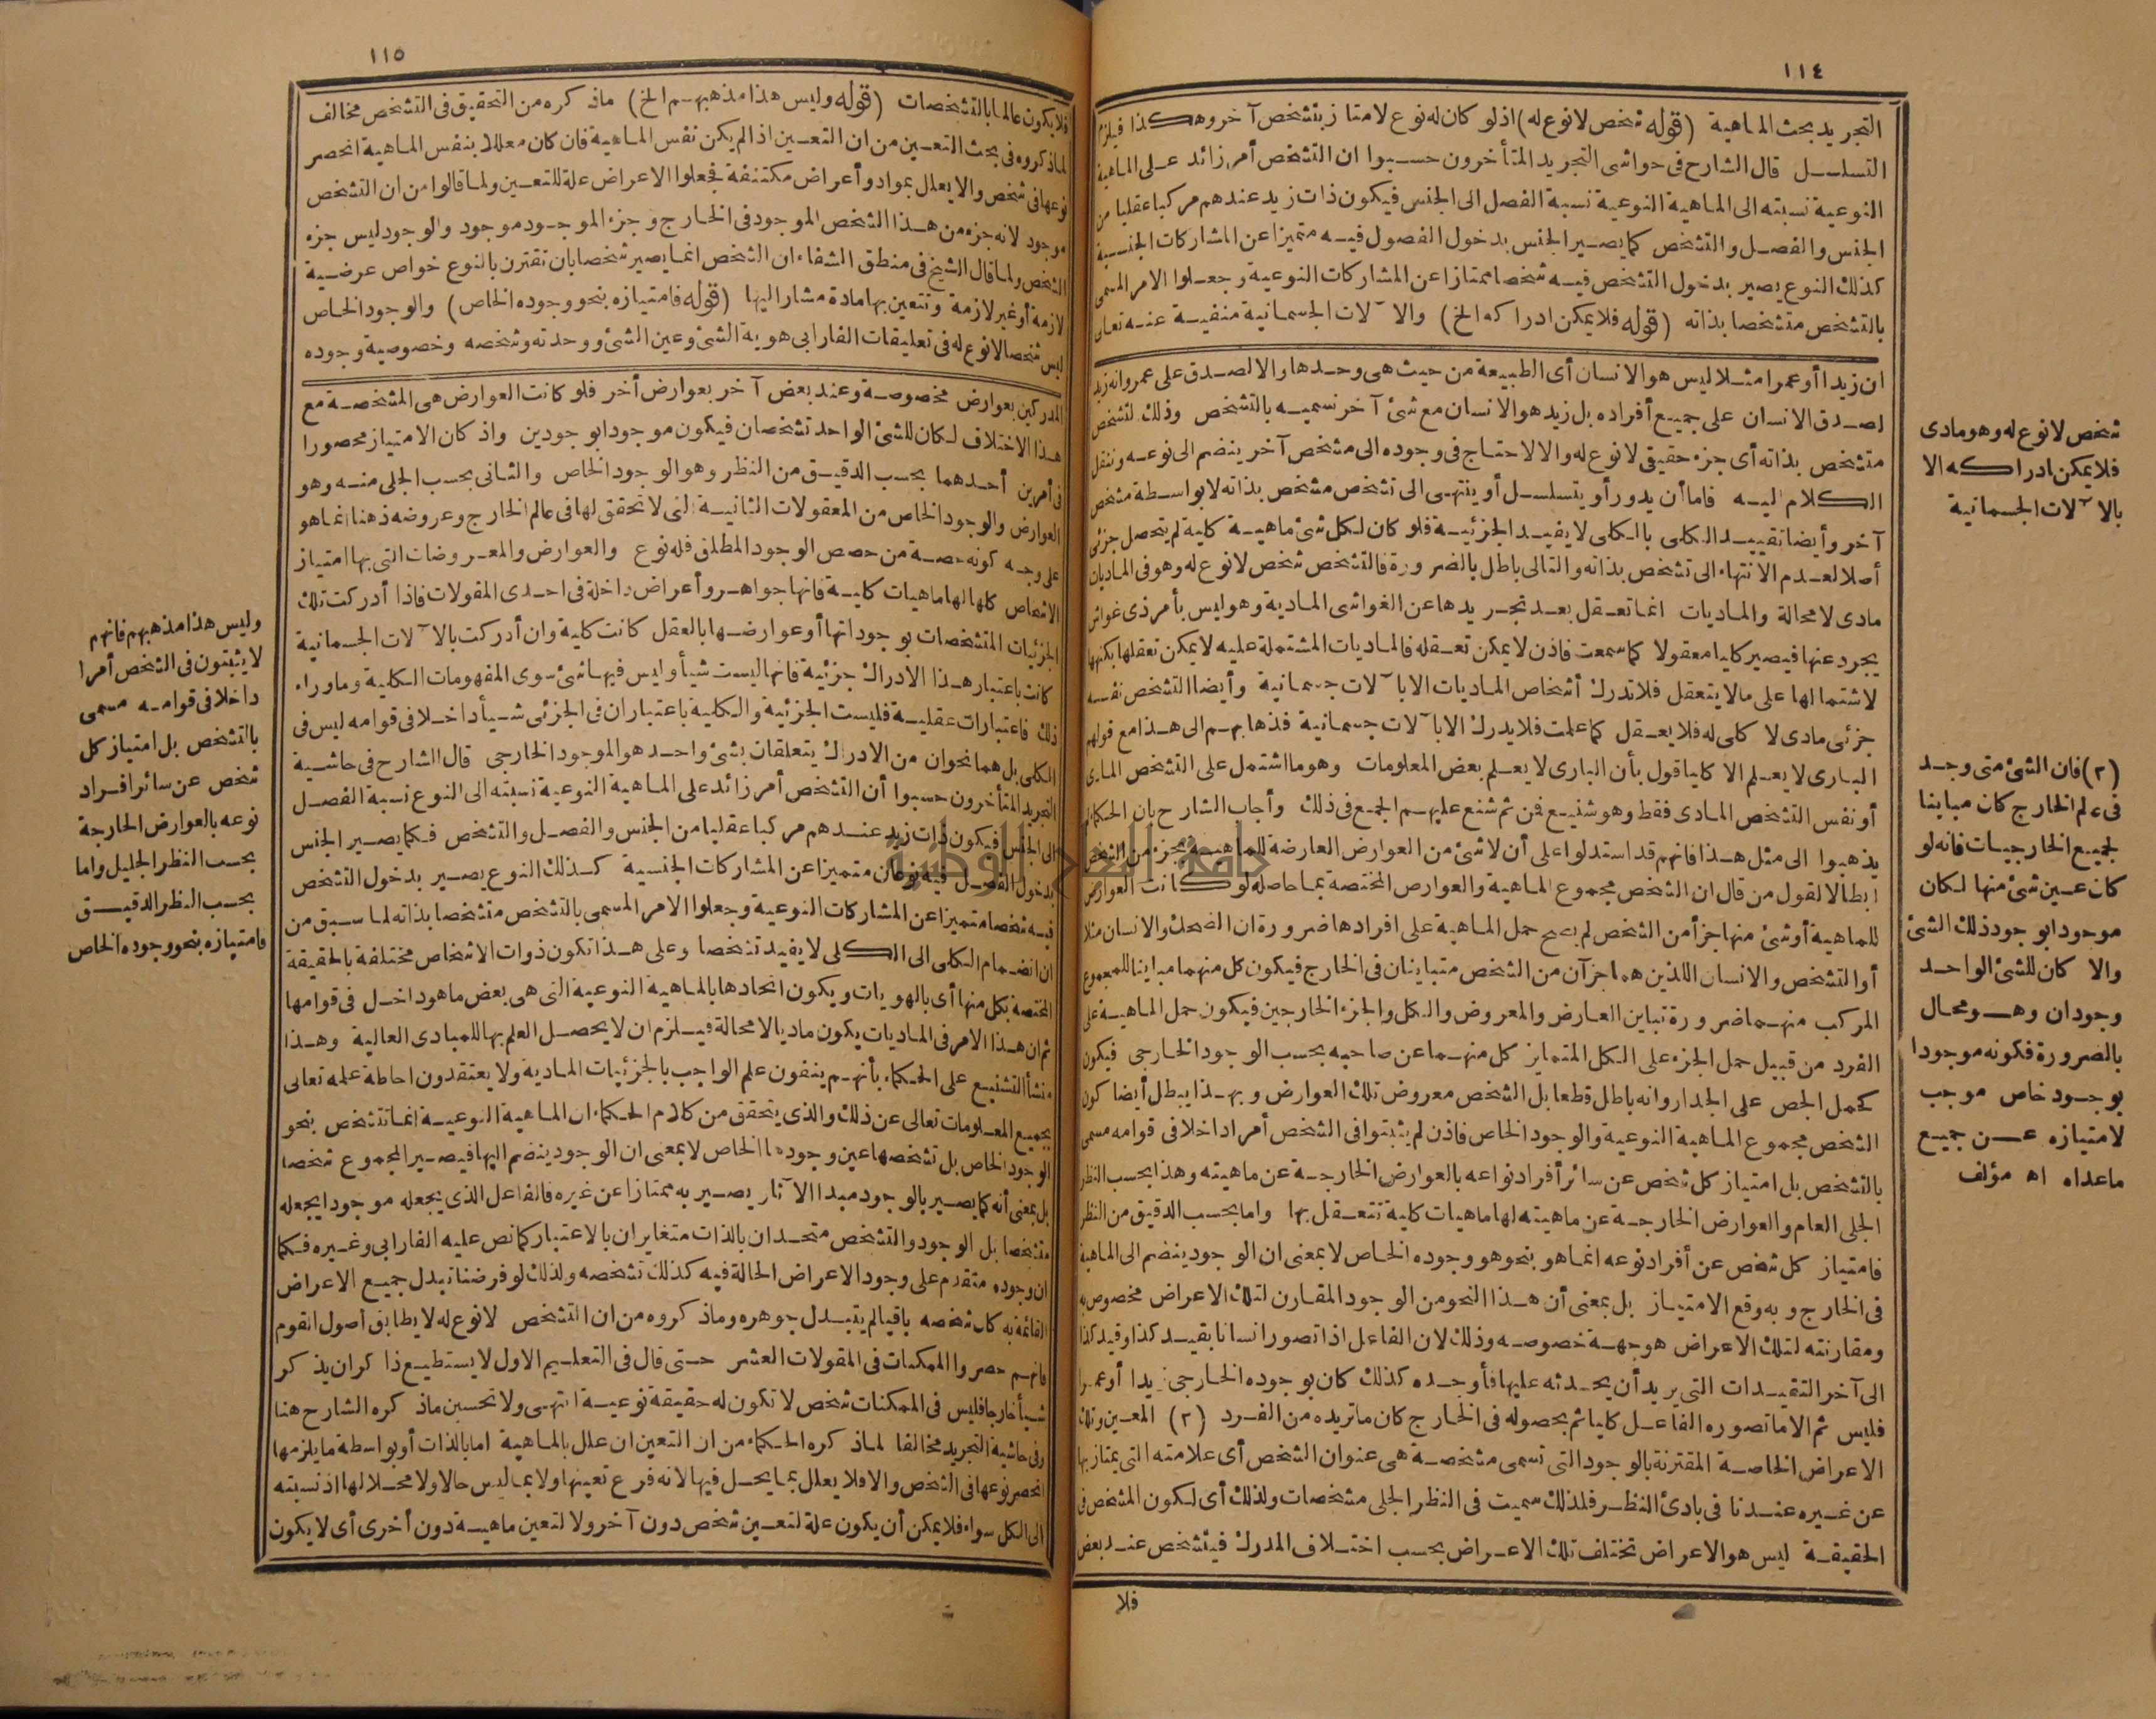 ١١٤
التجريد بحث الماهية (قوله شخص لا نوع له) اذ لو كان له نوع لامتاز بتشخص آخر وهكذا فيلزم
التسلسل قال الشارح فى حواشى التجريد المتأخرون حسبوا ان التشخص أمر زائد على الماهية
النوعية نسبته الى الماهية النوعية نسبة الفصل الى الجنس فيكون ذات زيد عندهم مركبا عقليا من
الجنس والفصل والتشخص كما يصير الجنس بدخول الفصول فيه متميزا عن المشاركات الجنسية
كذلك النوع يصير بدخول التشخص فيه شخصا ممتازا عن المشاركات النوعية وجعلوا الامر المسمى
بالتشخص متشخصا بذاته (قوله فلا يمكن ادراكه الخ) والآلات الجسمانية منفية عنه تعالى
ان زيدا أو عمرا مثلا ليس هو الانسان أى الطبيعة من حيث هى وحدها والا لصدق على عمرو انه زيد
لصدق الانسان على جميع أفراده بل زيد هو الانسان مع شئ آخر نسميه بالتشخص وذلك لتشخص
متشخص بذاته أى جزء حقيقى لا نوع له والا لاحتاج فى وجوده الى مشخص آخر ينضم الى نوعه وننقل
الكلام اليه فاما أن يدور أو يتسلسل أو ينتهى الى تشخص مشخص بذاته لا بواسطة مشخص
آخر وأيضا تقييد الكلى بالكلى لا يفيد الجزئية فلو كان لكل شئ ماهية كلية لم يتحصل جزئى
أصلا لعدم الانتهاء الى تشخص بذاته والتالى باطل بالضرورة فالتشخص شخص لا نوع له وهو فى الماديات
مادى لا محالة والماديات انما تعقل بعد تجريدها عن الغواشى المادية وهو ليس بأمر ذى غواش
يجرد عنها فيصير كليا معقولا كما سمعت فاذن لا يمكن تعقله فالماديات المشتملة عليه لا يمكن تعقلها بكنهها
لاشتمالها على ما لا يتعقل فلا تدرك أشخاص الماديات الا بآلات جسمانية وأيضا التشخص نفسه
جزئى مادى لا كلى له فلا يعقل كما علمت فلا يدرك الا بآلات جسمانية فذهابهم الى هذا مع قولهم
البارى لا يعلم الا كليا قول بأن البارى لا يعلم بعض المعلومات وهو ما اشتمل على التشخص المادى
أو نفس التشخص المادى فقط وهو شنيع فمن ثم شنع عليهم الجميع فى ذلك وأجاب الشارح بان الحكماء لم
يذهبوا الى مثل هذا فانهم قد استدلوا على أن لا شئ من العوارض العارضة للماهية بجزء من الشخص
ابطالا لقول من قال ان الشخص مجموع الماهية والعوارض المختصة بما حاصله لو كانت العوارض
للماهية أو شئ منها جزأ من الشخص لم يصح حمل الماهية على افرادها ضرورة ان الضحك والانسان مثلا
أو التشخص والانسان اللذين هما جزآن من الشخص متباينان فى الخارج فيكون كل منهما مباينا للمجموع
المركب منهما ضرورة تباين العارض والمعروض والكل والجزء الخارجين فيكون حمل الماهية على
الفرد من قبيل حمل الجزء على الكل المتمايز كل منهما عن صاحبه بحسب الوجود الخارجى فيكون
كحمل الجص على الجدار وانه باطل قطعا بل الشخص معروض تلك العوارض وبهذا يبطل أيضا كون
الشخص مجموع الماهية النوعية والوجود الخاص فاذن لم يثبتوا فى الشخص أمرا داخلا فى قوامه مسمى
بالتشخص بل امتياز كل شخص عن سائر أفراد نواعه بالعوارض الخارجة عن ماهيته وهذا بحسب النظر
الجلى العام والعوارض الخارجة عن ماهيته لها ماهيات كلية تتعقل بها واما بحسب الدقيق من النظر
فامتياز كل شخص عن أفراد نوعه انما هو بنحو هو وجوده الخاص لا بمعنى ان الوجود ينضم الى الماهية
فى الخارج وبه وقع الامتياز بل بمعنى أن هذا النحو من الوجود المقارن لتلك الاعراض مخصوص به
ومقارنته لتلك الاعراض هو جهة خصوصه وذلك لان الفاعل اذا تصور انسانا بقيد كذا وقيد كذا
الى آخر التقيدات التى يريد أن يحدثه عليها فأوجده كذلك كان بوجوده الخارجى زيدا أو عمرا
فليس ثم الا ما تصوره الفاعل كليا ثم بحصوله فى الخارج كان ما تريده من الفرد (٢) المعين وتلك
الاعراض الخاصة المقترنة بالوجود التى تسمى مشخصة هى عنوان الشخص أى علامته التى يمتاز بها
عن غيره عندنا فى بادئ النظر فلذلك سميت فى النظر الجلى مشخصات ولذلك أى لكون المشخص فى
الحقيقة ليس هو الاعراض تختلف تلك الاعراض بحسب اختلاف المدرك فيتشخص عند بعض
فلا
شخص لا نوع له وهو مادى
فلا يمكن ادراكه الا
بالآلات الجسمانية
(٢) فان الشئ متى وجد
فى عالم الخارج كان مباينا
لجميع الخارجيات فانه لو
كان عين شئ منها لكان
موجودا بوجود ذلك الشئ
والا كان للشئ الواحد
وجودان وهو محال
بالضرورة فكونه موجودا
بوجود خاص موجب
لامتيازه عن جميع
ما عداه اه مؤلف
١١٥
فلا يكون عالما بالتشخصات (قوله وليس هذا مذهبهم الخ) ما ذكره من التحقيق فى التشخص مخالف
لما ذكروه فى بحث التعين من ان التعين اذا لم يكن نفس الماهية فان كان معللا بنفس الماهية انحصر
نوعها فى شخص والا يعلل بمواد وأعراض مكتنفة فجعلوا الاعراض علة للتعين ولما قالوا من ان التشخص
موجود لانه جزء من هذا الشخص الموجود فى الخارج وجزء الموجود موجود والوجود ليس جزء
الشخص ولما قال الشيخ فى منطق الشفاء ان الشخص انما يصير شخصا بان تقترن بالنوع خواص عرضية
لازمة أو غير لازمة وتتعين بها مادة مشار اليها (قوله فامتيازه بنحو وجوده الخاص) والوجود الخاص
ليس شخصا لا نوع له فى تعليقات الفارابى هوية الشئ وعين الشئ ووحدته وشخصه وخصوصية وجوده
المدركين بعوارض مخصوصة وعند بعض آخر بعوارض أخر فلو كانت العوارض هى المشخصة مع
هذا الاختلاف لكان للشئ الواحد تشخصان فيكون موجودا بوجودين واذ كان الامتياز محصورا
فى أمرين أحدهما بحسب الدقيق من النظر وهو الوجود الخاص والثانى بحسب الجلى منه وهو
العوارض والوجود الخاص من المعقولات الثانية التى لا تحقق لها فى عالم الخارج وعروضه ذهنا انما هو
على وجه كونه حصة من حصص الوجود المطلق فله نوع والعوارض والمعروضات التى بها امتياز
الاشخاص كلها لها ماهيات كلية فانها جواهر وأعراض داخلة فى احدى المقولات فاذا أدركت تلك
الجزئيات المتشخصات بوجوداتها أو عوارضها بالعقل كانت كلية وان أدركت بالآلات الجسمانية
كانت باعتبار هذا الادراك جزئية فانها ليست شيأ وليس فيها شئ سوى المفهومات الكلية وما وراء
ذلك فاعتبارات عقلية فليست الجزئية والكلية باعتبار ان فى الجزئى شيأ داخلا فى قوامه ليس فى
الكلى بل هما نحوان من الادراك يتعلقان بشئ واحد هو الموجود الخارجى قال الشارح فى حاشية
التجريد المتأخرون حسبوا أن التشخص أمر زائد على الماهية النوعية نسبته الى النوع نسبة الفصل
الى الجنس فيكون ذات زيد عندهم مركبا عقليا من الجنس والفصل والتشخص فكما يصير الجنس
بدخول الفصل فيه نوعا متميزا عن المشاركات الجنسية كذلك النوع يصير بدخول التشخص
فيه شخصا متميزا عن المشاركات النوعية وجعلوا الامر المسمى بالتشخص متشخصا بذاته لما سبق من
ان انضمام الكلى الى الكلى لا يفيد تشخصا وعلى هذا تكون ذوات الاشخاص مختلفة بالحقيقة
المختصة بكل منها أى بالهويات ويكون اتحادها بالماهية النوعية التى هى بعض ما هو داخل فى قوامها
ثم ان هذا الامر فى الماديات يكون ماديا لا محالة فيلزم ان لا يحصل العلم بها للمبادى العالية وهذا
منشأ التشنيع على الحكماء بأنهم ينفون علم الواجب بالجزئيات المادية ولا يعتقدون احاطة علمه تعالى
بجميع المعلومات تعالى عن ذلك والذى يتحقق من كلام الحكماء ان الماهية النوعية انما تتشخص بنحو
الوجود الخاص بل تشخصها عين وجودها الخاص لا بمعنى ان الوجود ينضم اليها فيصير المجموع شخصا
بل بمعنى أنه كما يصير بالوجود مبدا الآثار يصير به ممتازا عن غيره فالفاعل الذى يجعله موجودا يجعله
متشخصا بل الوجود والتشخص متحدان بالذات متغايران بالاعتبار كما نص عليه الفارابى وغيره فكما
ان وجوده متقدم على وجود الاعراض الحالة فيه كذلك تشخصه ولذلك لو فرضنا تبدل جميع الاعراض
القائمة به كان شخصه باقيا لم يتبدل جوهره وما ذكروه من ان التشخص لا نوع له لا يطابق أصول القوم
فانهم حصروا الممكنات فى المقولات العشر حتى قال فى التعليم الاول لا يستطيع ذاكر ان يذكر
شيأ خارجا فليس فى الممكنات شخص لا تكون له حقيقة نوعية انتهى ولا تحسبن ما ذكره الشارح هنا
وفى حاشية التجريد مخالفا لما ذكره الحكماء من ان التعين ان علل بالماهية اما بالذات أو بواسطة ما يلزمها
انحصر نوعها فى الشخص والا فلا يعلل بما يحل فيها لانه فرع تعينها ولا بما ليس حالا ولا محلا لها اذ نسبته
الى الكل سواء فلا يمكن أن يكون علة لتعين شخص دون آخر ولا لتعين ماهية دون أخرى أى لا يكون
وليس هذا مذهبهم فانهم
لا يثبتون فى الشخص أمرا
داخلا فى قوامه مسمى
بالتشخص بل امتياز كل
شخص عن سائر افراد
نوعه بالعوارض الخارجة
بحسب النظر الجليل واما
بحسب النظر الدقيق
فامتيازه بنحو وجوده الخاص
جامعة النجاح الوطنية